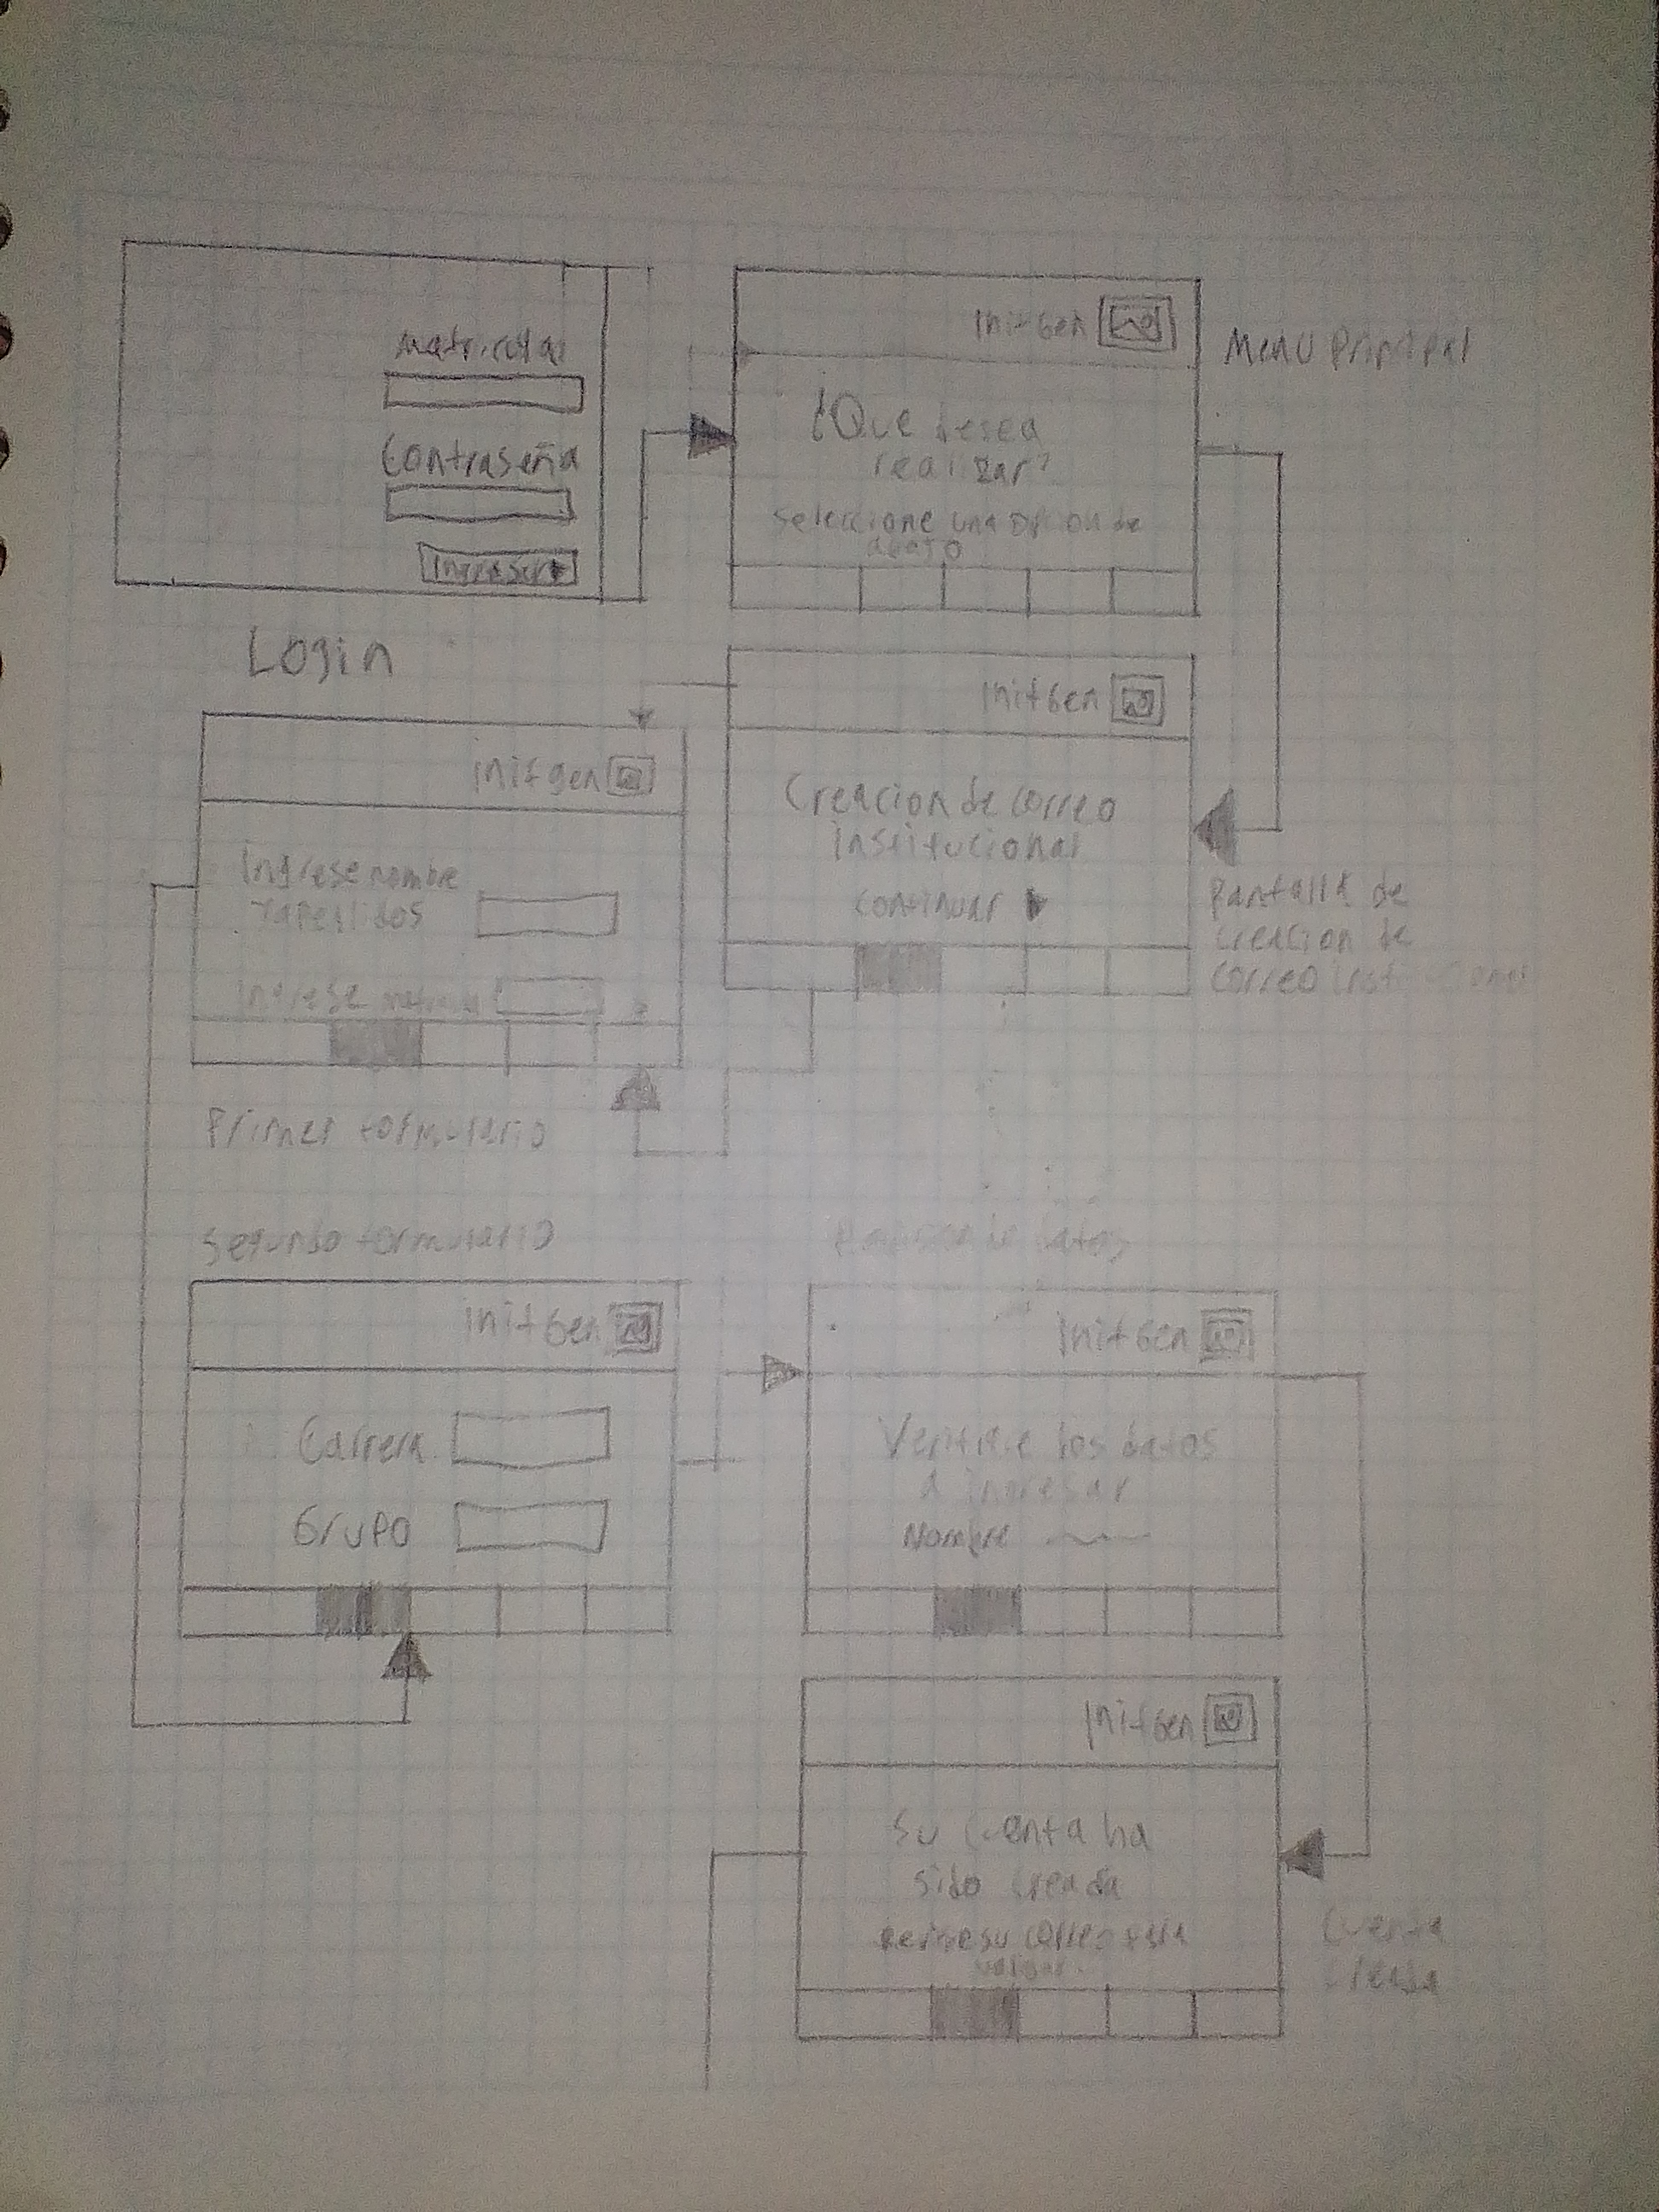 Matricula
Contraseña
Ingresar
Login
InitGen
Menu Principal
¿Que desea
realizar?
Seleccione una opcion de
abajo
InitGen
Creacion de correo
institucional
Continuar
Pantalla de
creacion de
correo
Initgen
Ingrese nombre
y apellidos
Ingrese matricula
Primer formulario
Segundo formulario
InitGen
Carrera
Grupo
de datos
InitGen
Verifique los datos
a ingresar
Nombre
InitGen
Su cuenta ha
sido creada
su correo para
Cuenta
creada